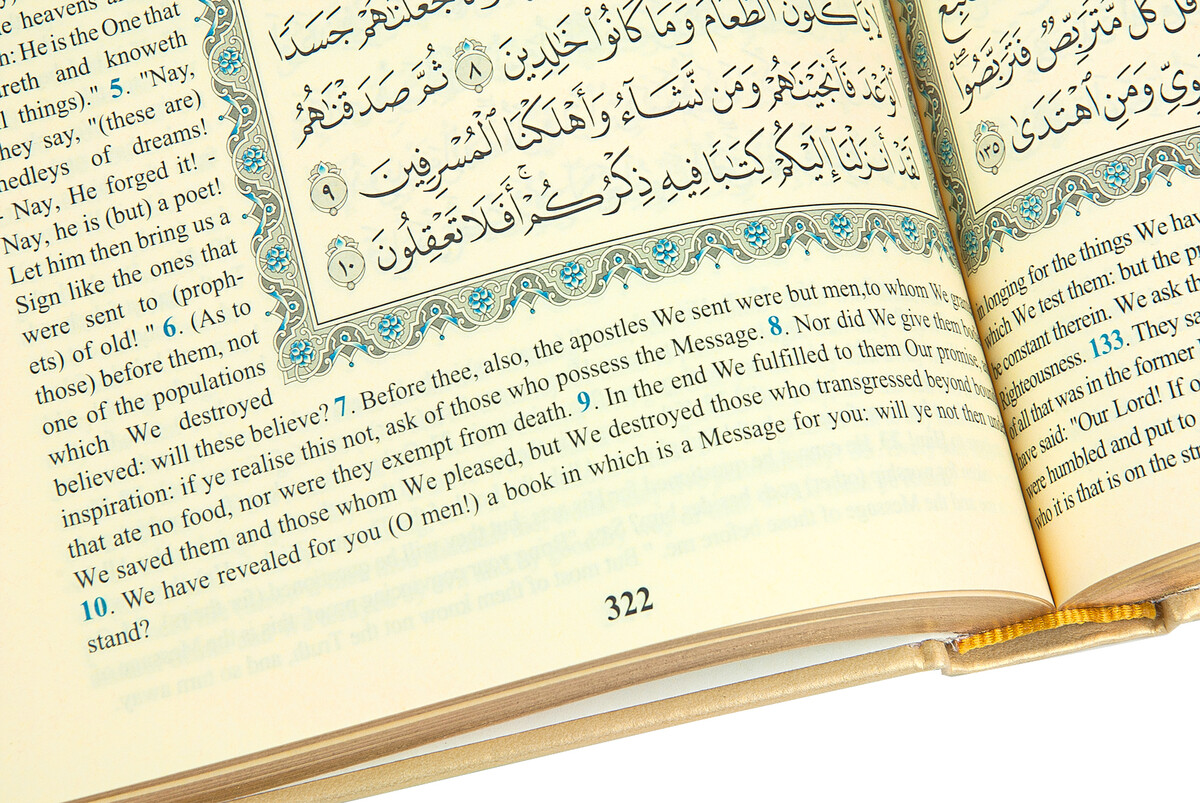 لَّا يَأْكُلُونَ ٱلطَّعَامَ وَمَا كَانُوا۟ خَٰلِدِينَ ٨ ثُمَّ صَدَقْنَٰهُمُ
ٱلْوَعْدَ فَأَنجَيْنَٰهُمْ وَمَن نَّشَآءُ وَأَهْلَكْنَا ٱلْمُسْرِفِينَ ٩
لَقَدْ أَنزَلْنَآ إِلَيْكُمْ كِتَٰبًا فِيهِ ذِكْرُكُمْ أَفَلَا تَعْقِلُونَ ١٠
heavens
h: He is the One that
areth and knoweth
l things)." 5. "Nay,
they say, "(these are)
medleys of dreams!
- Nay, He forged it!
Nay, he is (but) a poet!
Let him then bring us a
Sign like the ones that
were sent to (proph-
ets) of old! " 6. (As to
those) before them, not
one of the populations
which We destroyed
believed: will these believe? 7. Before thee, also, the apostles We sent were but men,to whom We
inspiration: if ye realise this not, ask of those who possess the Message. 8. Nor did We give them
that ate no food, nor were they exempt from death. 9. In the end We fulfilled to them Our promise,
We saved them and those whom We pleased, but We destroyed those who transgressed beyond
10. We have revealed for you (O men!) a book in which is a Message for you: will ye not then under
stand?
322
قُلْ كُلٌّ مُّتَرَبِّصٌ فَتَرَبَّصُوا۟
وَمَنِ ٱهْتَدَىٰ ١٣٥
in longing for the things We have
which We test them: but the
be constant therein. We ask
Righteousness. 133. They
of all that was in the former
have said: "Our Lord! If
were humbled and put to
who it is that is on the